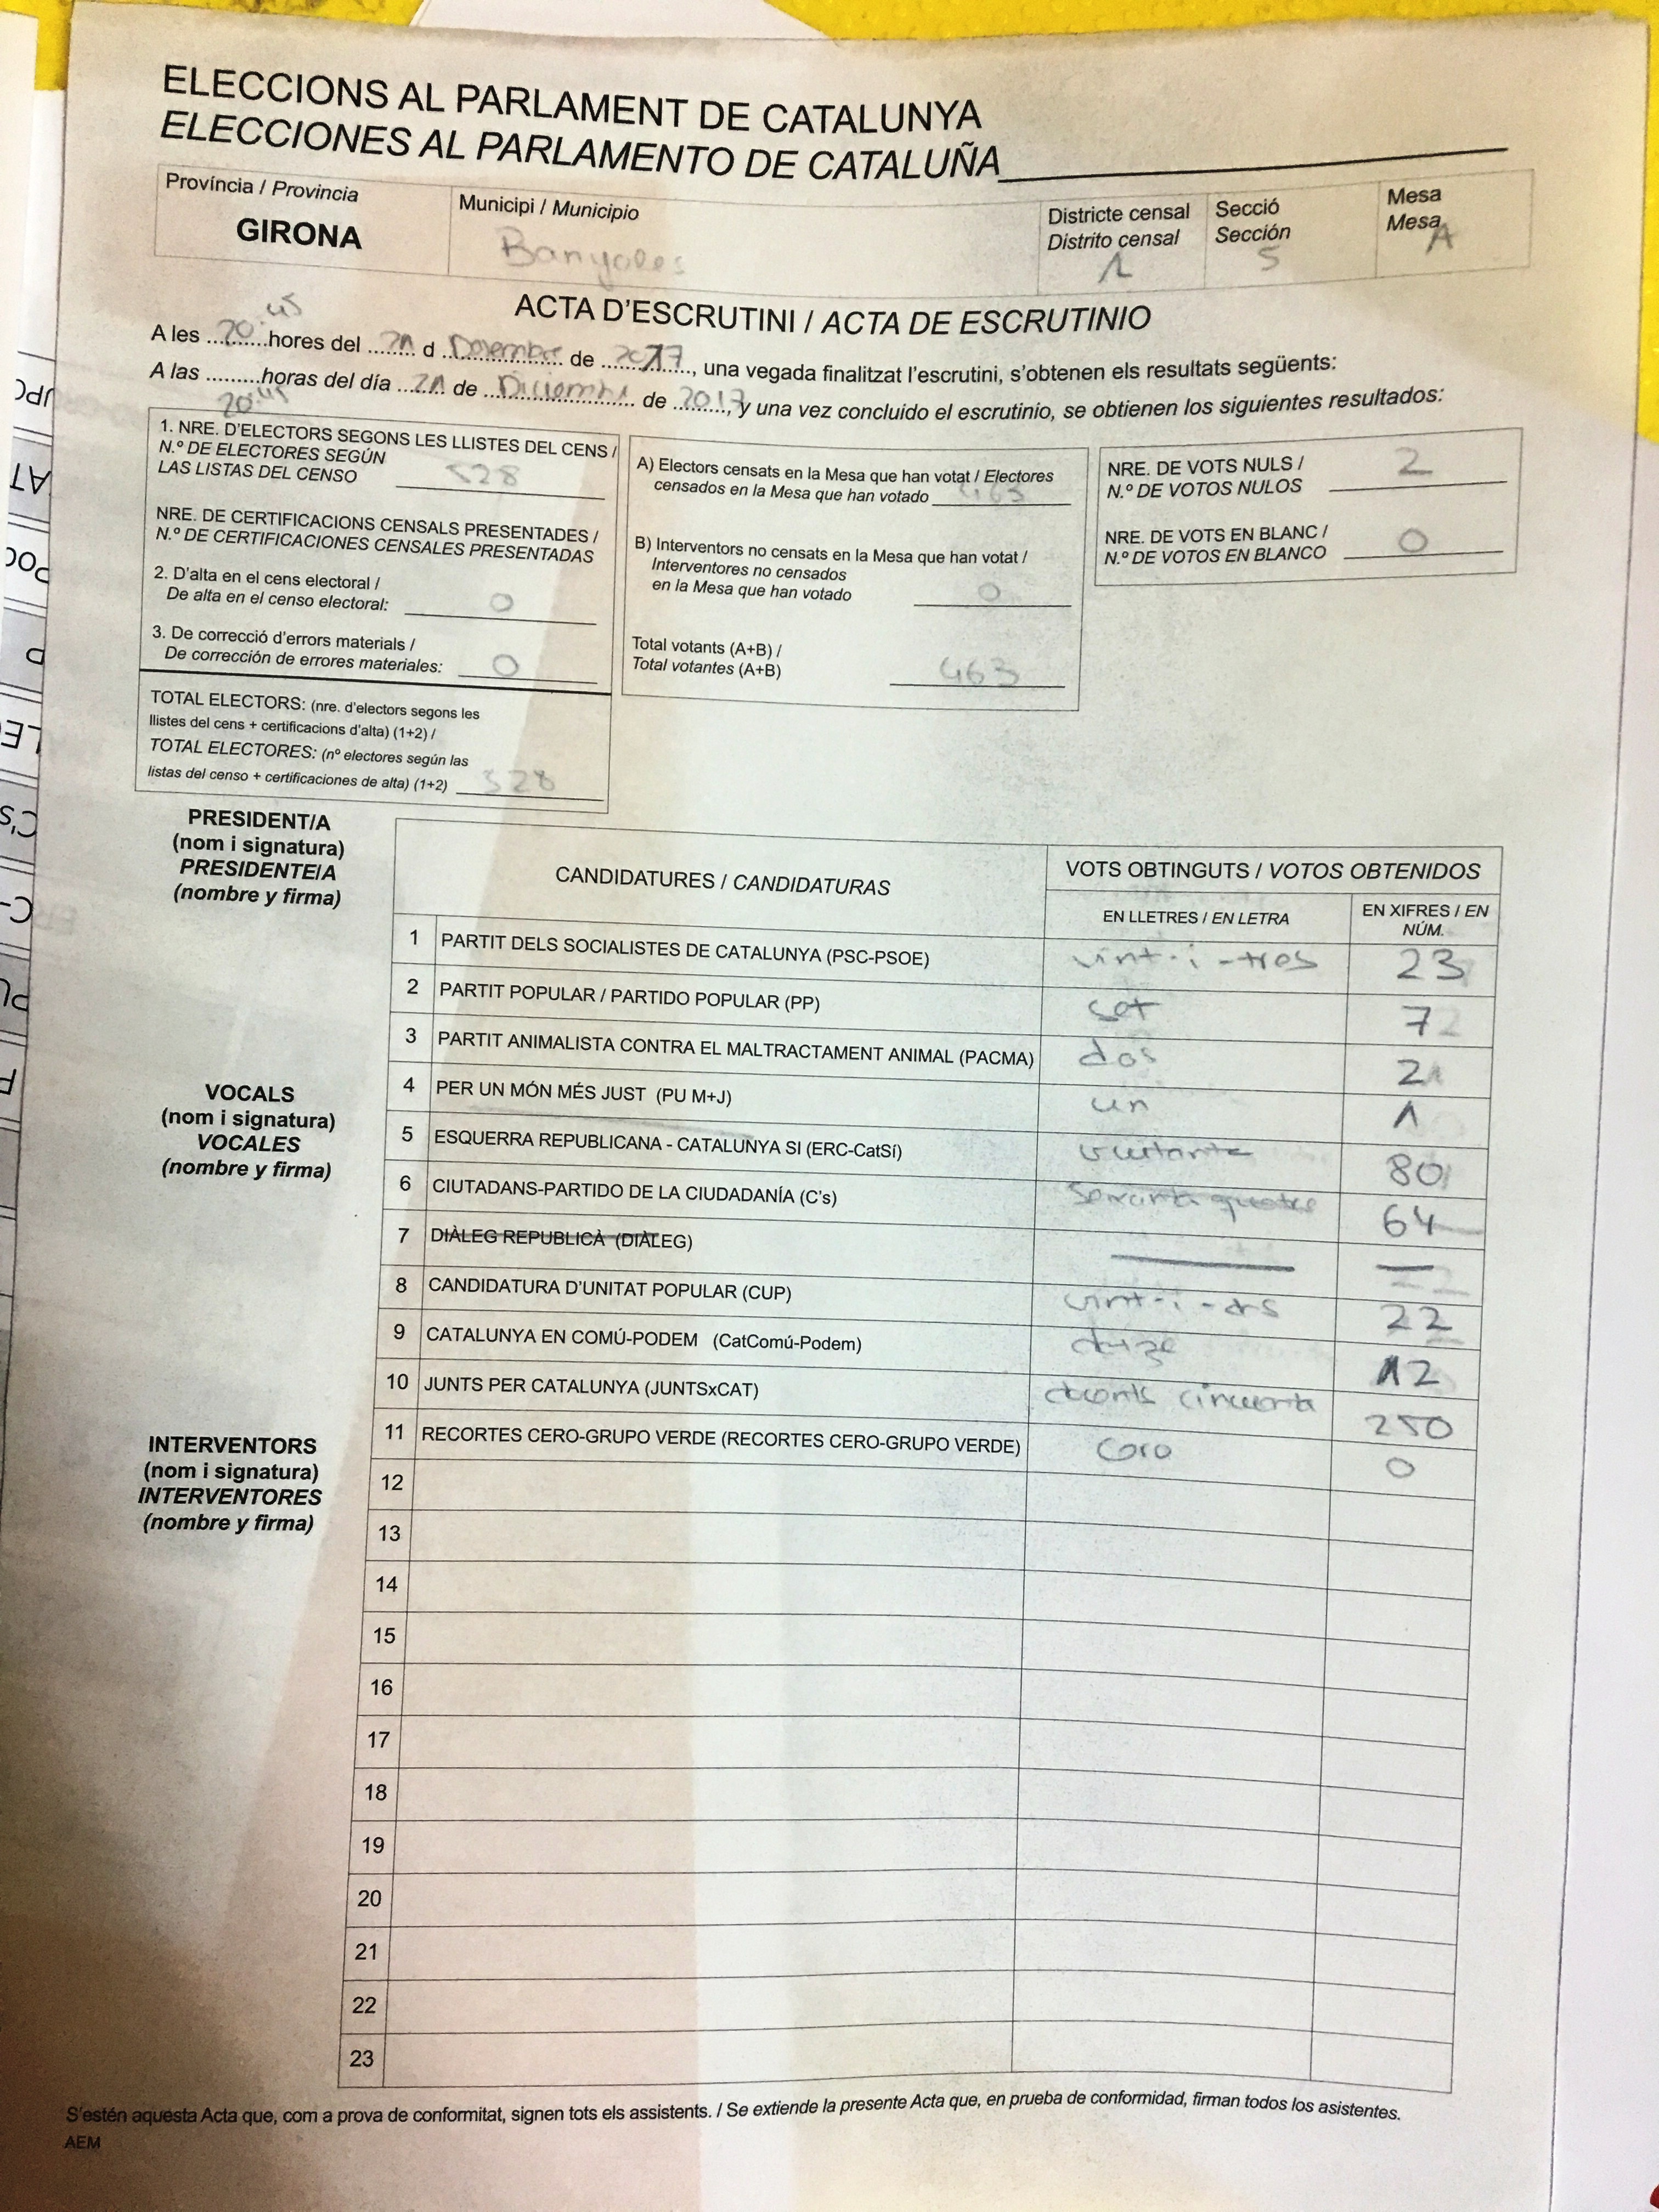 ELECCIONS AL PARLAMENT DE CATALUNYA
ELECCIONES AL PARLAMENTO DE CATALUÑA
Província / Provincia
GIRONA
Municipi / Municipio
Banyoles
Districte censal
Distrito censal
1
Secció
Sección
5
Mesa
Mesa
A
ACTA D'ESCRUTINI / ACTA DE ESCRUTINIO
A les 20:45 hores del 21 d Desembre de 2017, una vegada finalitzat l'escrutini, s'obtenen els resultats següents:
A las 20:45 horas del día 21 de Diciembre de 2017, y una vez concluido el escrutinio, se obtienen los siguientes resultados:
1. NRE. D'ELECTORS SEGONS LES LLISTES DEL CENS /
N.º DE ELECTORES SEGÚN
LAS LISTAS DEL CENSO 528
NRE. DE CERTIFICACIONS CENSALS PRESENTADES /
N.º DE CERTIFICACIONES CENSALES PRESENTADAS
2. D'alta en el cens electoral /
De alta en el censo electoral: 0
3. De correcció d'errors materials /
De corrección de errores materiales: 0
TOTAL ELECTORS: (nre. d'electors segons les
llistes del cens + certificacions d'alta) (1+2) /
TOTAL ELECTORES: (nº electores según las
listas del censo + certificaciones de alta) (1+2) 528
A) Electors censats en la Mesa que han votat / Electores
censados en la Mesa que han votado 463
B) Interventors no censats en la Mesa que han votat /
Interventores no censados
en la Mesa que han votado 0
Total votants (A+B) /
Total votantes (A+B) 463
NRE. DE VOTS NULS /
N.º DE VOTOS NULOS 2
NRE. DE VOTS EN BLANC /
N.º DE VOTOS EN BLANCO 0
PRESIDENT/A
(nom i signatura)
PRESIDENTE/A
(nombre y firma)
VOCALS
(nom i signatura)
VOCALES
(nombre y firma)
INTERVENTORS
(nom i signatura)
INTERVENTORES
(nombre y firma)
CANDIDATURES / CANDIDATURAS
VOTS OBTINGUTS / VOTOS OBTENIDOS
EN LLETRES / EN LETRA
EN XIFRES / EN
NÚM.
1 PARTIT DELS SOCIALISTES DE CATALUNYA (PSC-PSOE) vint-i-tres 23
2 PARTIT POPULAR / PARTIDO POPULAR (PP) set 7
3 PARTIT ANIMALISTA CONTRA EL MALTRACTAMENT ANIMAL (PACMA) dos 2
4 PER UN MÓN MÉS JUST (PU M+J) un 1
5 ESQUERRA REPUBLICANA - CATALUNYA SI (ERC-CatSí) vuitanta 80
6 CIUTADANS-PARTIDO DE LA CIUDADANÍA (C's) seixanta quatre 64
7 DIÀLEG REPUBLICÀ (DIÀLEG) — —
8 CANDIDATURA D'UNITAT POPULAR (CUP) vint-i-dos 22
9 CATALUNYA EN COMÚ-PODEM (CatComú-Podem) dotze 12
10 JUNTS PER CATALUNYA (JUNTSxCAT) docents cincuenta 250
11 RECORTES CERO-GRUPO VERDE (RECORTES CERO-GRUPO VERDE) cero 0
12
13
14
15
16
17
18
19
20
21
22
23
S'estén aquesta Acta que, com a prova de conformitat, signen tots els assistents. / Se extiende la presente Acta que, en prueba de conformidad, firman todos los asistentes.
AEM